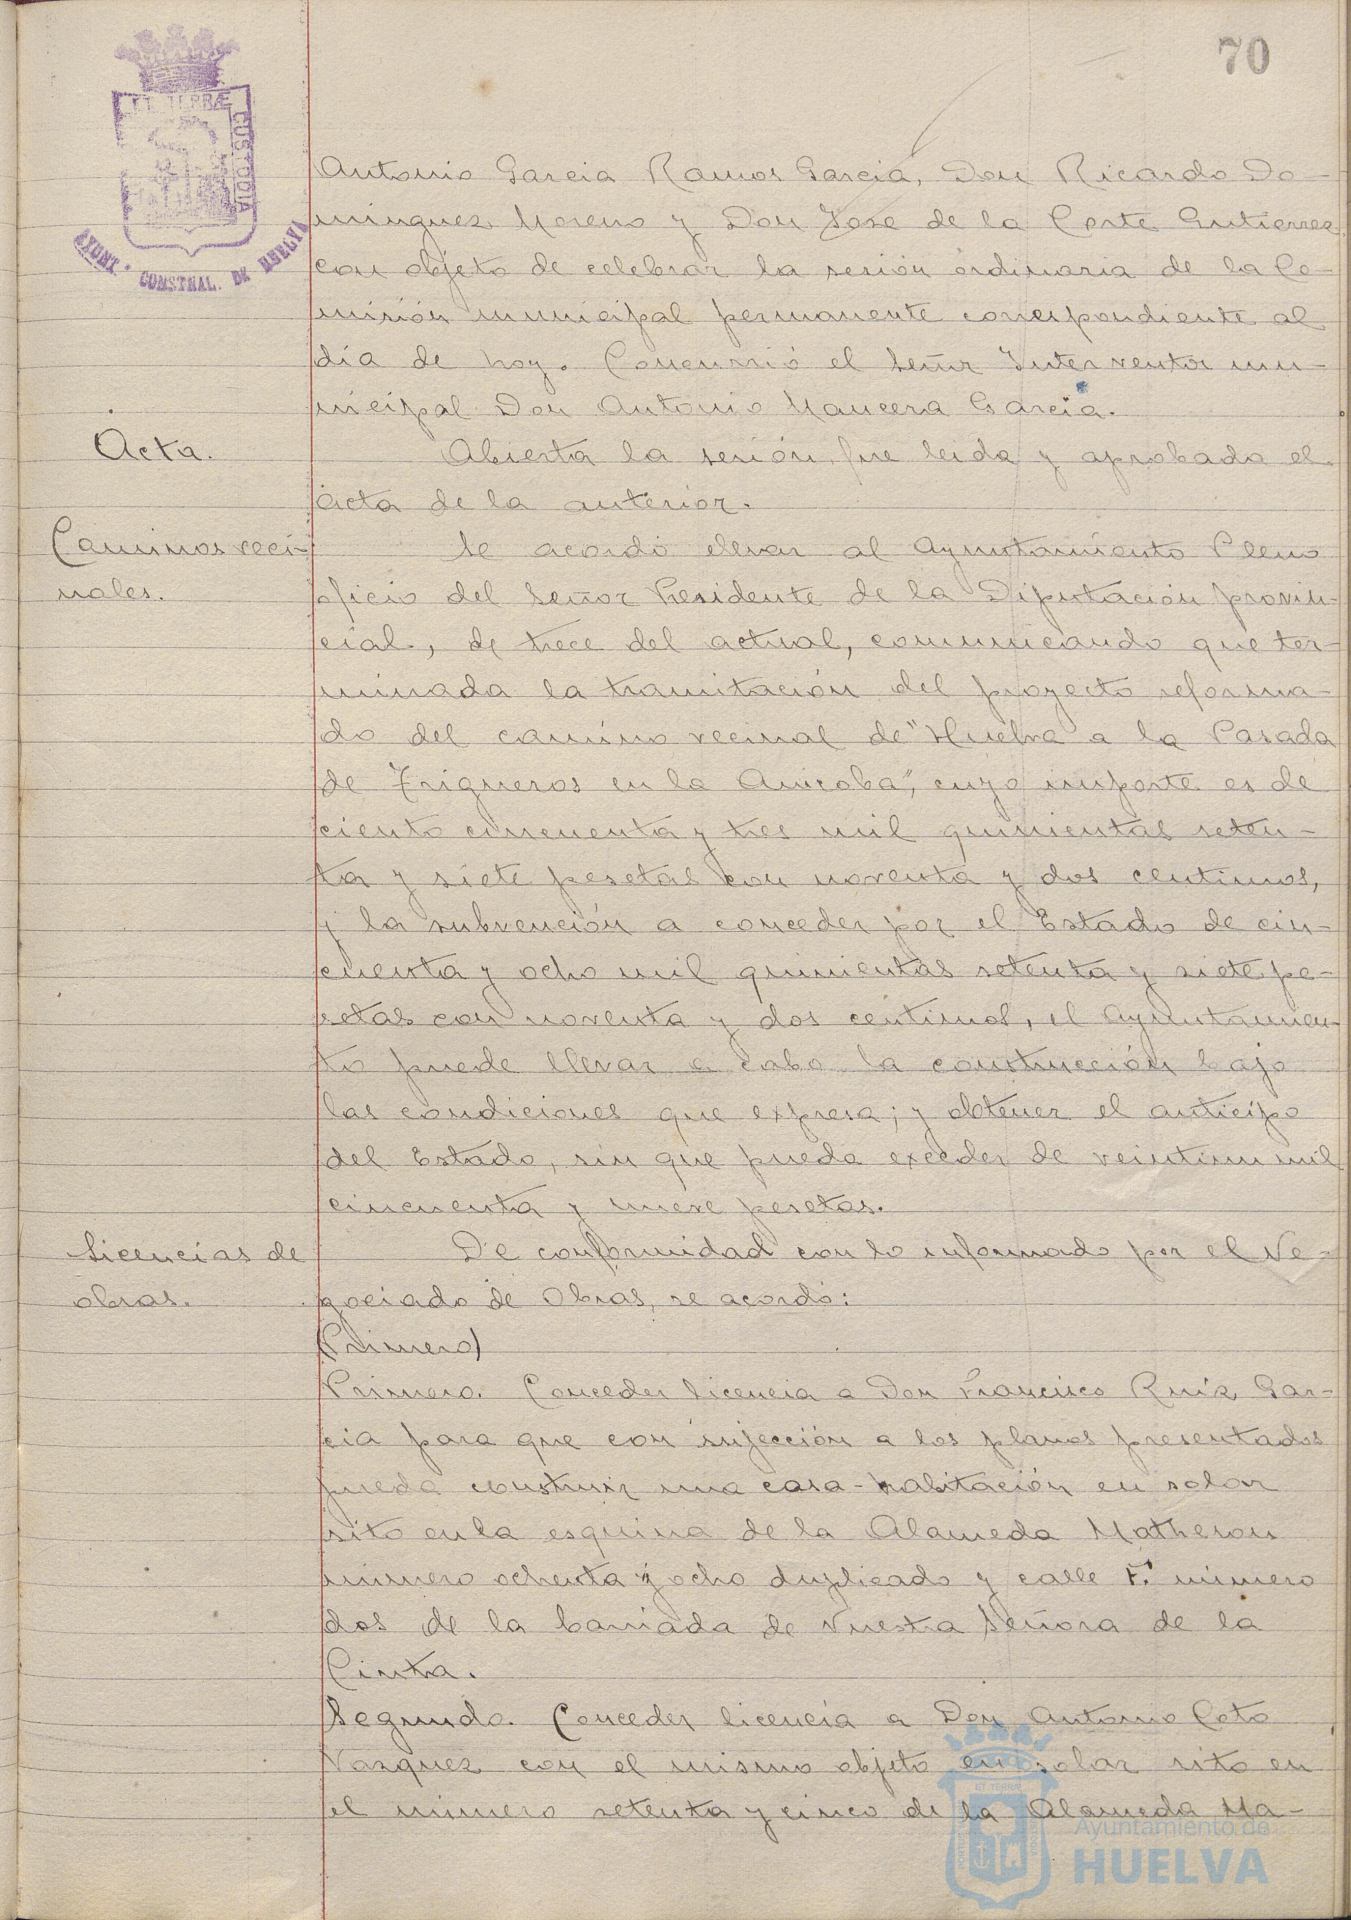 70
ET TERRÆ
CUSTODIA
AYUNT. CONSTNAL. DE HUELVA
Antonio Garcia Ramos Garcia, Don Ricardo Do-
minguez Moreno y Don Jose de la Corte Gutierrez
con objeto de celebrar la sesión ordinaria de la Co-
misión municipal permanente correspondiente al
día de hoy. Concurrió el Señor Interventor mu-
nicipal Don Antonio Mancera Garcia.
Acta.
Abierta la sesión, fue leida y aprobada el
acta de la anterior.
Caminos veci-
nales.
Se acordó elevar al Ayuntamiento Pleno
oficio del Señor Presidente de la Diputación provin-
cial, de trece del actual, comunicando que ter-
minada la tramitación del proyecto reforma-
do del camino vecinal de "Huelva a la Pasada
de Trigueros en la Anicoba", cuyo importe es de
ciento cincuenta y tres mil quinientas seten-
ta y siete pesetas con noventa y dos centimos,
y la subvención a conceder por el Estado de cin-
cuenta y ocho mil quinientas setenta y siete pe-
setas con noventa y dos centimos, el Ayuntamien-
to puede llevar a cabo la construcción bajo
las condiciones que expresa; y obtener el anticipo
del Estado, sin que pueda exceder de veintiun mil
cincuenta y nueve pesetas.
Licencias de
obras.
De conformidad con lo informado por el Ne-
gociado de Obras, se acordó:
(Primero)
Primero. Conceder licencia a Don Francisco Ruiz Gar-
cia para que con sujección a los planos presentados
pueda construir una casa-habitación en solar
sito en la esquina de la Alameda Matheson
número ochenta y ocho duplicado y calle F. número
dos de la barriada de Nuestra Señora de la
Cinta.
Segundo. Conceder licencia a Don Antonio Coto
Vazquez con el mismo objeto en solar sito en
el número setenta y cinco de la Alameda Ma-
ET TERRÆ
Ayuntamiento de
HUELVA